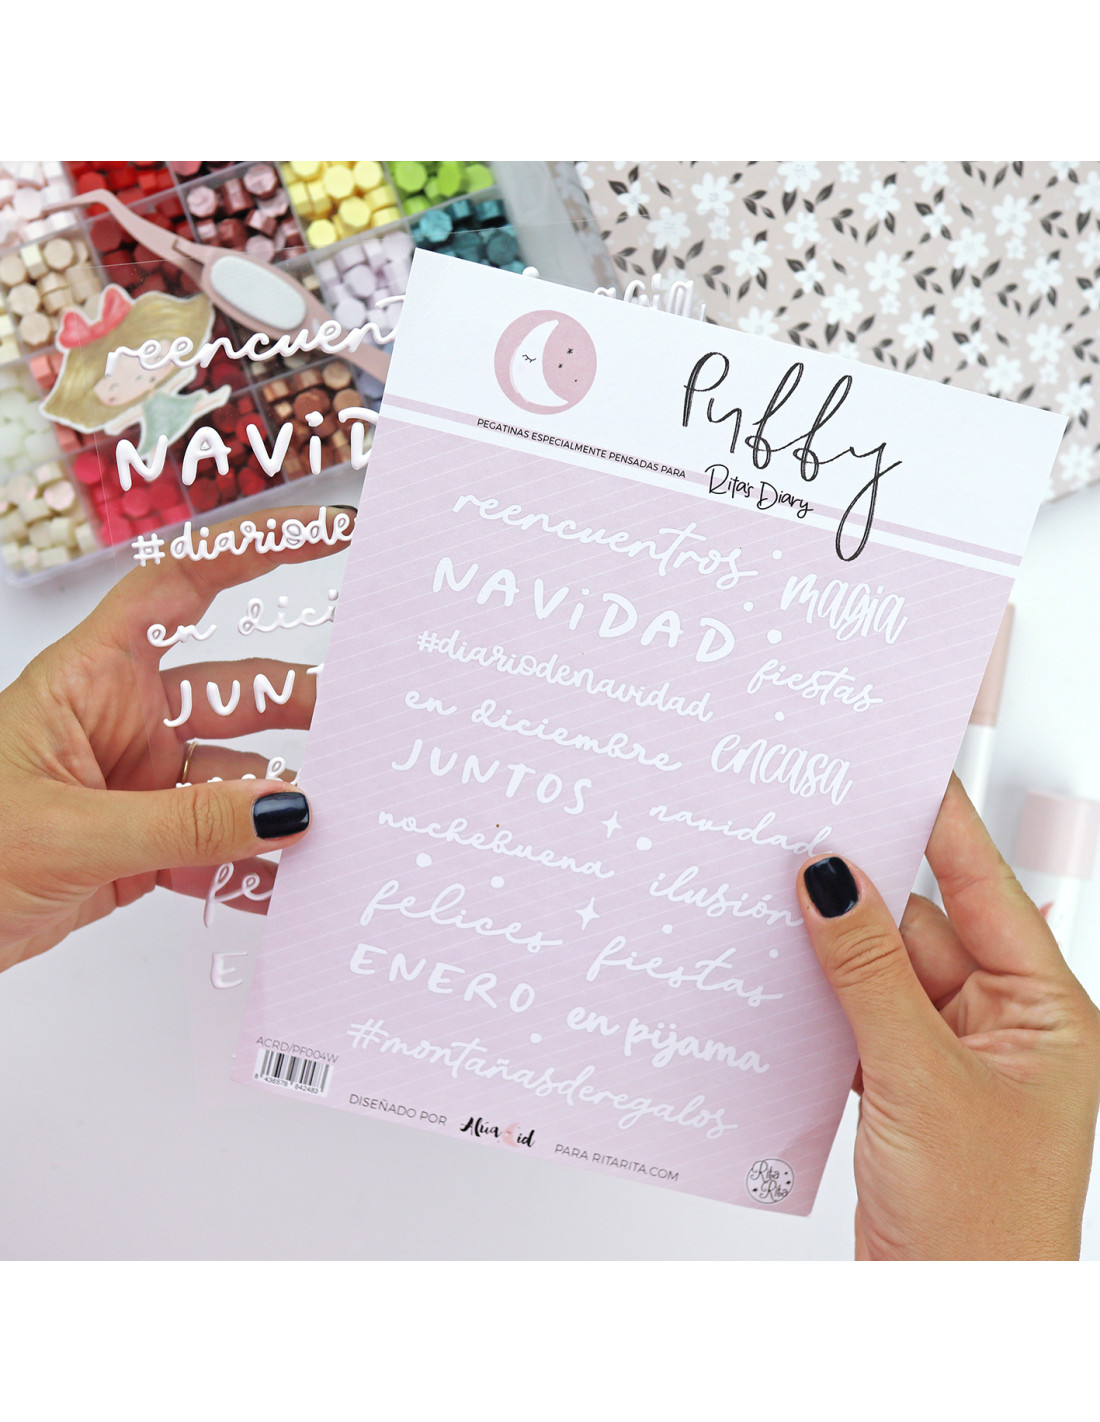 Puffy
PEGATINAS ESPECIALMENTE PENSADAS PARA
Rita's Diary
reencuentros
magia
NAViDAD
fiestas
#diariodenavidad
en diciembre
encasa
JUNTOS
navidad
nochebuena
ilusión
felices fiestas
ENERO
en pijama
#montañasderegalos
ACRD/PF004W
8 436578 842483
DISEÑADO POR Alúa Cid PARA RITARITA.COM
Rita Rita
magia
reencuent
NAViD
#diariode
en dici
JUNT
noch
fe
E